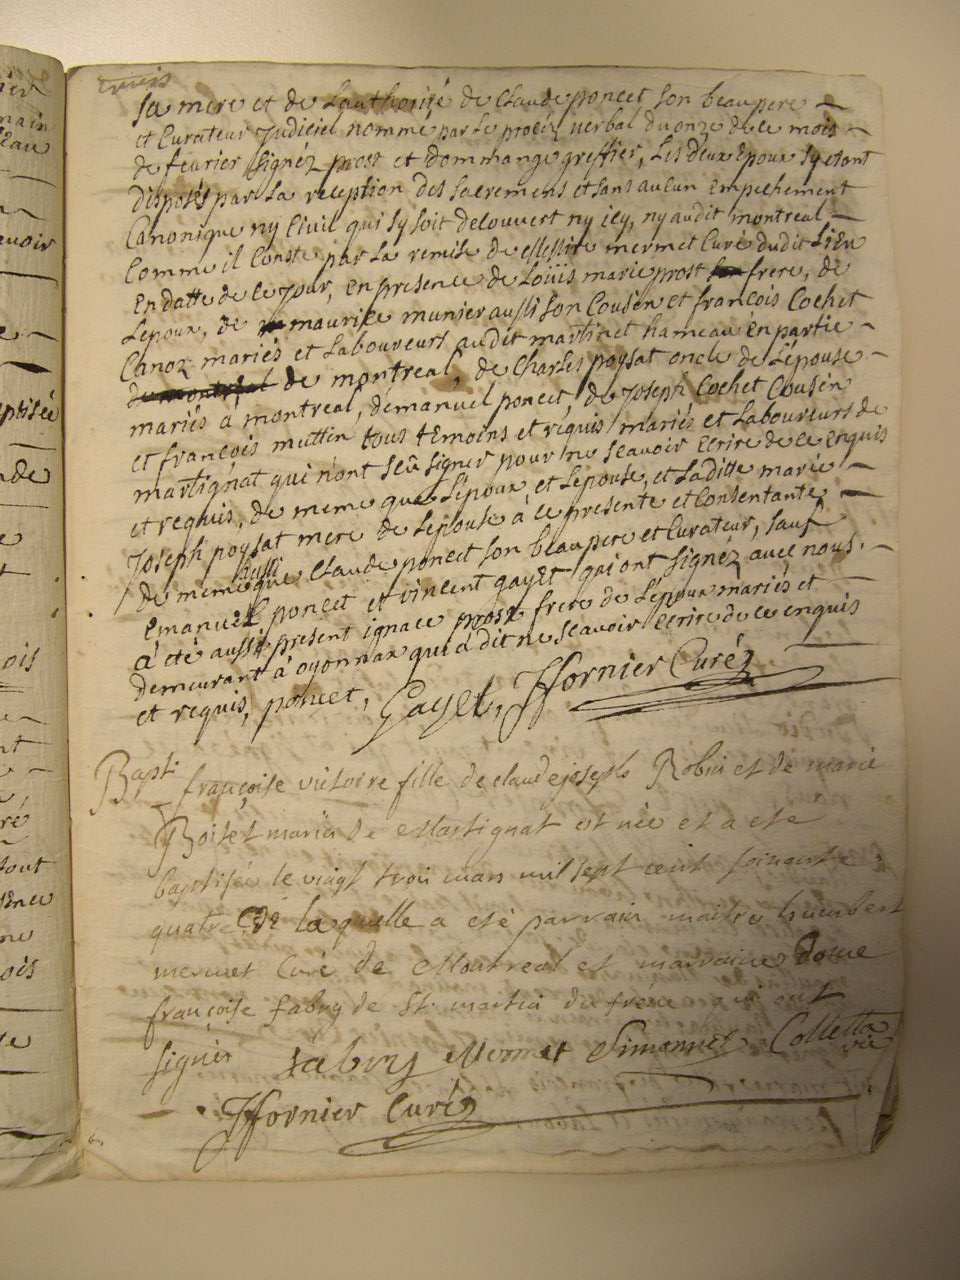 sa mere et de Lauthorité de Claude poncet son beaupere
et Curateur Judiciel nommé par le procéz verbal du onze de ce mois
de fevrier signéz prost et dommange greffier, Les deux Epoux sy etant
disposés par La reception des sacremens et sans aucun Empechement
Canonique ny Civil qui sy soit decouvert ny icy, ny audit montreal
Comme il Conste par La remise de Messire mermet Curé dudit Lieu
En datte de ce Jour, en presence de Loüis marie prost frere, de
Lepoux, de maurice munier aussi son Cousin et françois Cochet
Canoz mariés et Laboureurs audit martinet hameau en partie
de montreal, de Charles poysat oncle de Lépouse
mariés á montreal, demanuel poncet, de Joseph Cochet Cousin
et françois muttin tous temoins et requis mariés et Laboureurs de
martignat qui n'ont sçû signer pour ne scavoir Ecrire de ce enquis
et requis, de meme que Lépoux et Lepouse, et Laditte marie
Joseph poysat mere de Lepouse á ce presente et Consentante
de meme aussi que Claude poncet son beaupere et Curateur, sauf
Emanuel poncet et vincent gayet qui ont signéz avec nous.
á eté aussi present ignace prost frere de Lepoux mariés et
demeurant á oyonnax qui á dit ne scavoir Ecrire de ce enquis
et requis, poncet, Gayet, Jfornier Curéz
Bapt. françoise victoire fille de claude joseph Robin et de marie
Boitet mariés de Martignat est née et a ete
baptisée le vingt trois mars mil sept cent soixante
quatre De laquelle a eté parrain maitre humbert
mermet Curé de Montreal et marraine
françoise fabry de St. martin du frene qui ont
signés fabry Mermet Simonnet Colletta
Jfornier Curéz